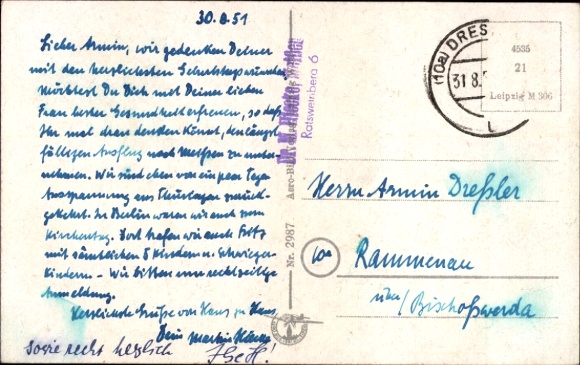 30.8.51
Lieber Armin, wir gedenken Deiner
mit den herzlichsten Geburtstagswünschen
Möchtest Du Dich mit Deiner lieben
Frau bester Gesundheit erfreuen, so daß
Ihr mal dran denken könnt, den längst
fälligen Ausflug nach Meißen zu unter-
nehmen. Wir sind eben von ein paar Tagen
Ausspannung aus Thüringen zurück-
gekehrt. In Berlin waren wir auch zum
Kirchentag. Dort trafen wir auch Fritz
mit sämtlichen 5 Kindern u. Schwieger-
kindern – Wir bitten um rechtzeitige
Anmeldung.
Herzlichste Grüße von Haus zu Haus
Dein Martin
sowie recht herzlich
Ratsweinberg 6
Nr. 2987
Aero-Bild
(10a) DRES
31.8.
4535
21
Leipzig M 306
Herrn Armin Dreßler
10a
Rammenau
über/Bischofswerda